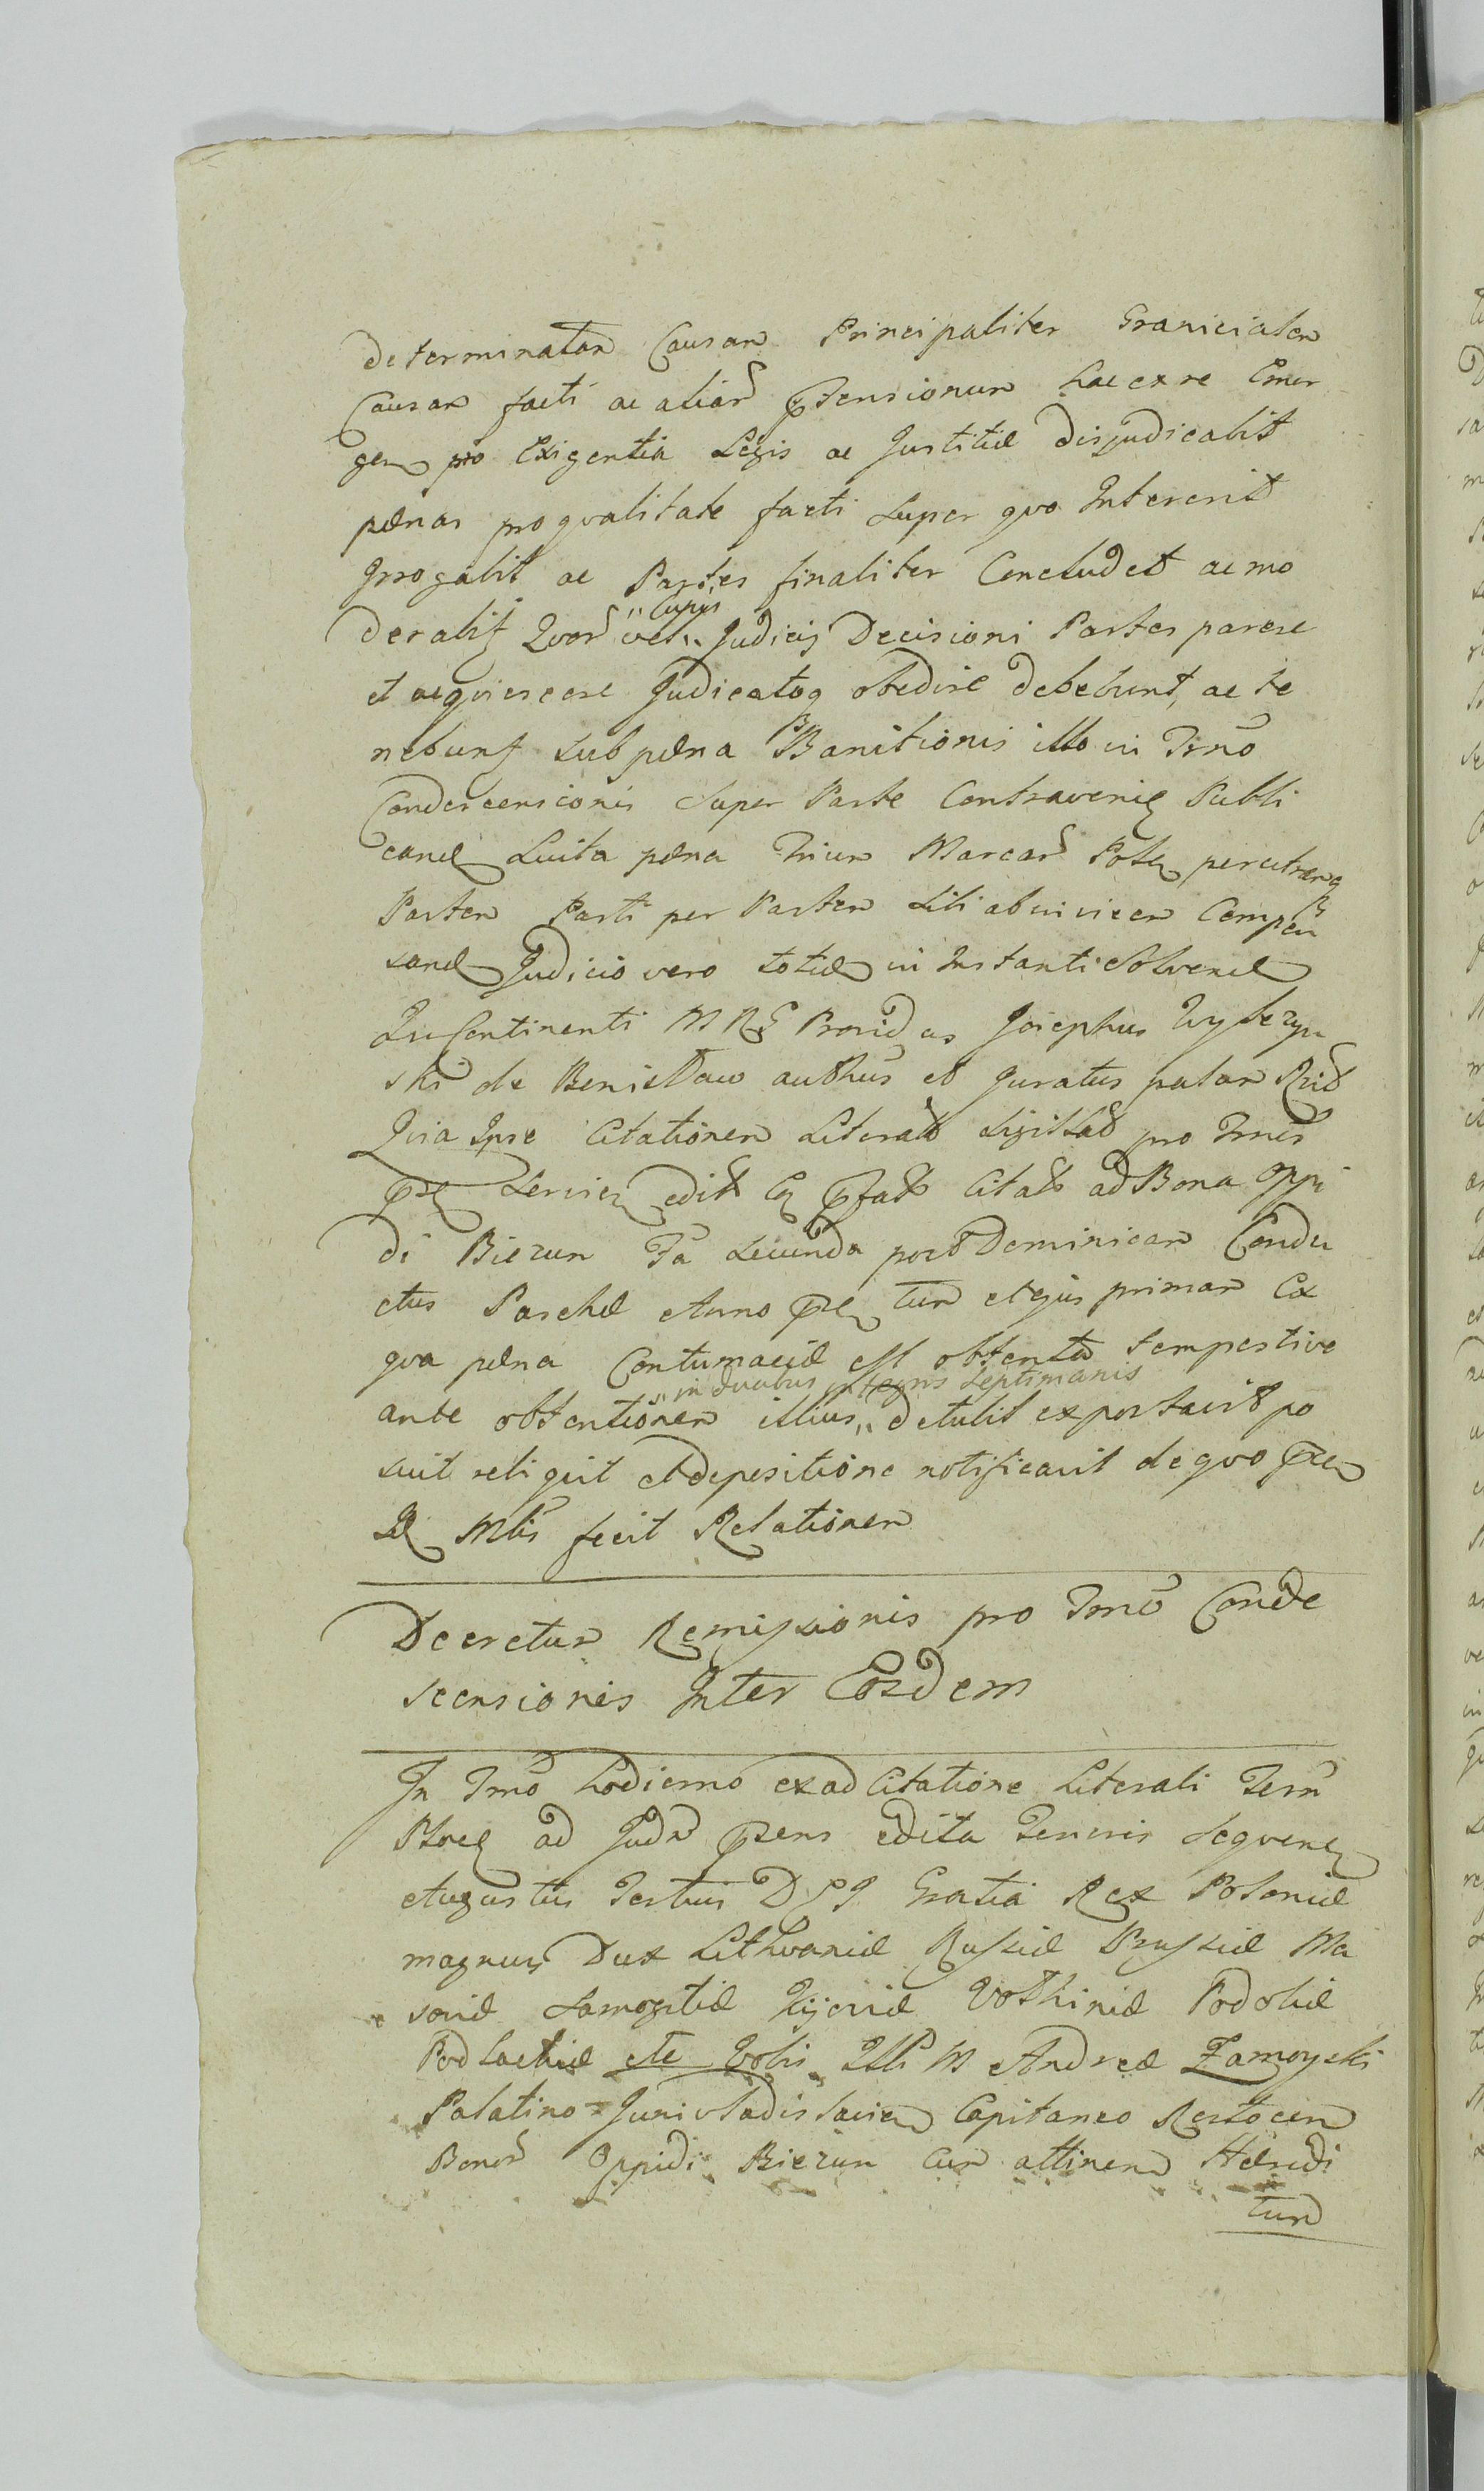 determinatam Causam Principaliter Granicialem
Causam facti ac aliar prtensionum hac ex re Emer
gen pro Exigentia Legis ac Justitiæ disjudicabit
pænas pro qvalitate facti super qvo Intererit
Irrogabit ac Partes finaliter Concludet ac mo
derabit Qvor vel „Cujus„ Judicij Decisioni Partes parere
et acqviescere Judicatoq obedire debebunt, ac te
nebunt sub pæna Banitionis illo in Trno
Condescensionis super Parte Contravenien Publi
cand Luita pæna Trium Marcar Polon per utramq
Partem Parti per Partem sibi ab invicem Compen
sand Judicio vero totid in Instanti Solvend
In Continenti M R G Provid us Josephus Wyberzyn
ski de Benisław authus et Juratus palam Rnd
Qvia Ipse Citationem Literalem Sigillat pro Trno
prn Servien edit Cn prfat Citat ad Bona Oppi
di Biezun Fa secunda post Dominicam Condu
ctus Paschæ Anno prn tum et ejus primam Ex
qva pæna Contumaciæ est obtenta tempestive
ante obtentionem illius „in duabus integris septimanis„ detulit exportavit po
suit reliqvit et de positione notificavit de qvo prn
Sæ Mtis fecit Relationem
Decretum Remissionis pro Trno Conde
scensionis Inter Eosdem
In Trno hodierno ex ad Citatione Literali Terri
Ploc ad Judm prsens edita Tenoris Seqven
Augustus Tertius D G Gratia Rex Poloniæ
magnus Dux Lithvaniæ Russiæ Prussiæ Ma
soviæ Samogitiæ Kijoviæ Volhiniæ Podoliæ
Podlachiæ etc Vobis Illi M Andreæ Zamoyski
Palatino Junivladislavien Capitaneo Rostocen
Bonor Oppidi Biezun cum attinen Hæredi
tum